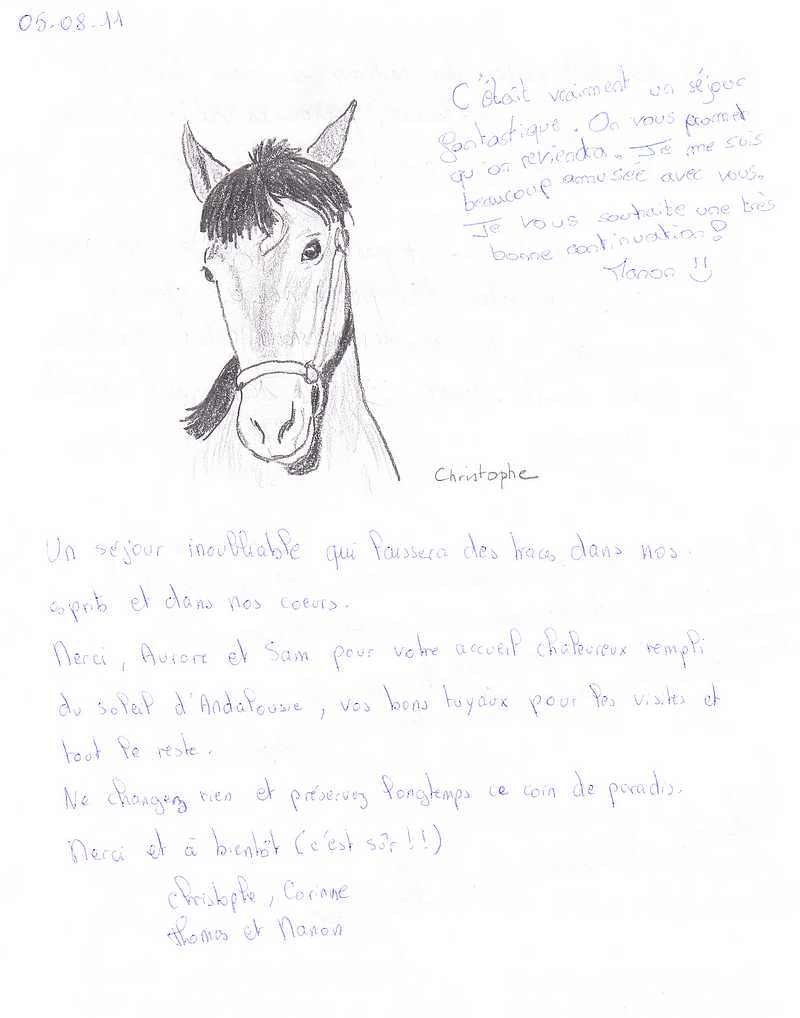 05.08.11
C'était vraiment un séjour
fantastique. On vous promet
qu'on reviendra. Je me suis
beaucoup amusée avec vous.
Je vous souhaite une très
bonne continuation !
Manon :)
Christophe
Un séjour inoubliable qui laissera des traces dans nos
esprits et dans nos coeurs.
Merci, Aurore et Sam pour votre accueil chaleureux rempli
du soleil d'Andalousie, vos bons tuyaux pour les visites et
tout le reste.
Ne changez rien et préservez longtemps ce coin de paradis.
Merci et à bientôt (c'est sûr !!)
Christophe, Corinne
Thomas et Manon